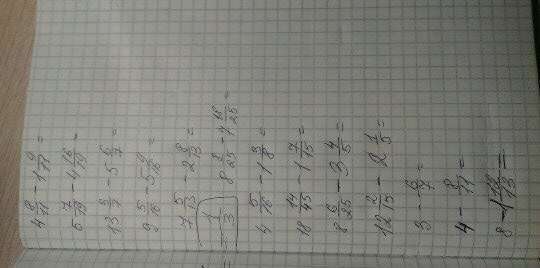 4 8/11 - 1 9/11 =
5 7/19 - 4 16/19 =
13 3/7 - 5 6/7 =
9 5/16 - 5 9/16
7 5/13 - 2 8/13 =
= 1/3
8 8/25 - 4 18/25 =
4 5/16 - 1 3/8 =
18 14/45 - 1 7/15 =
8 6/25 - 3 4/5 =
12 2/15 - 2 1/5 =
3 - 6/7 =
4 - 8/11 =
8 - 1 10/13 =